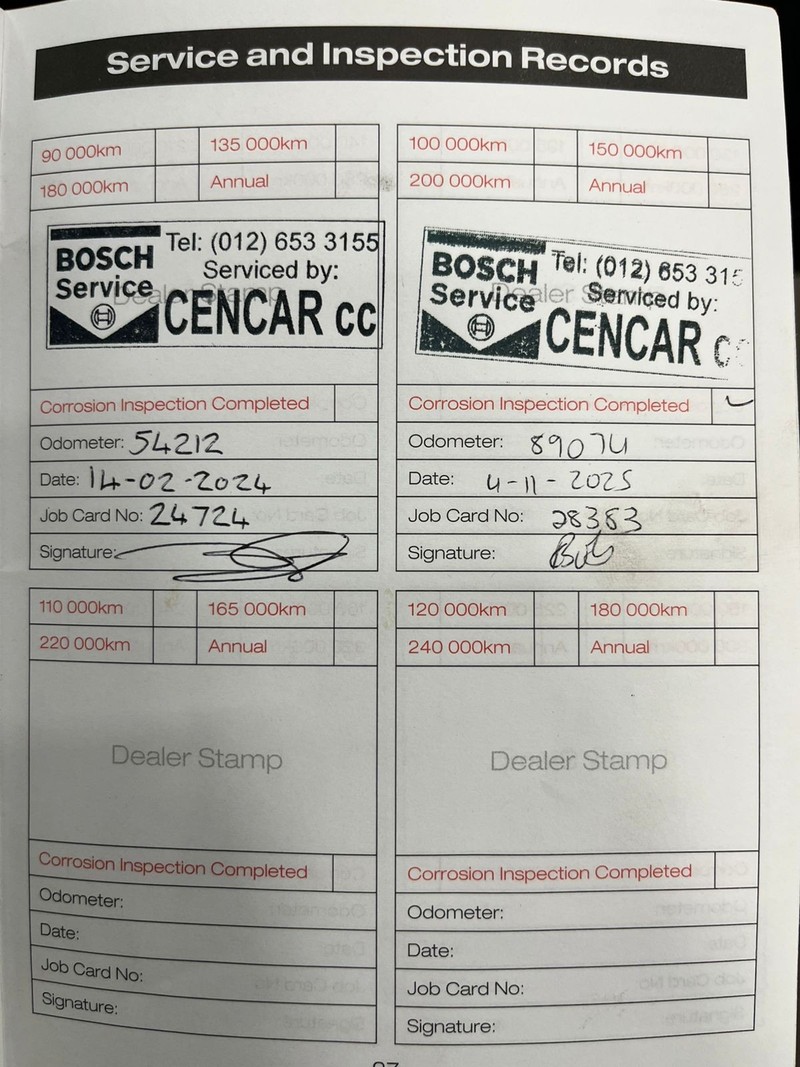 Service and Inspection Records
90 000km 135 000km
180 000km Annual
BOSCH Service
Tel: (012) 653 3155
Serviced by:
CENCAR CC
Dealer Stamp
Corrosion Inspection Completed
Odometer: 54212
Date: 14-02-2024
Job Card No: 24724
Signature:
100 000km 150 000km
200 000km Annual
BOSCH Service
Tel: (012) 653 315
Serviced by:
CENCAR C
Dealer Stamp
Corrosion Inspection Completed ✓
Odometer: 89074
Date: 4-11-2025
Job Card No: 28383
Signature:
110 000km 165 000km
220 000km Annual
Dealer Stamp
Corrosion Inspection Completed
Odometer:
Date:
Job Card No:
Signature:
120 000km 180 000km
240 000km Annual
Dealer Stamp
Corrosion Inspection Completed
Odometer:
Date:
Job Card No:
Signature: